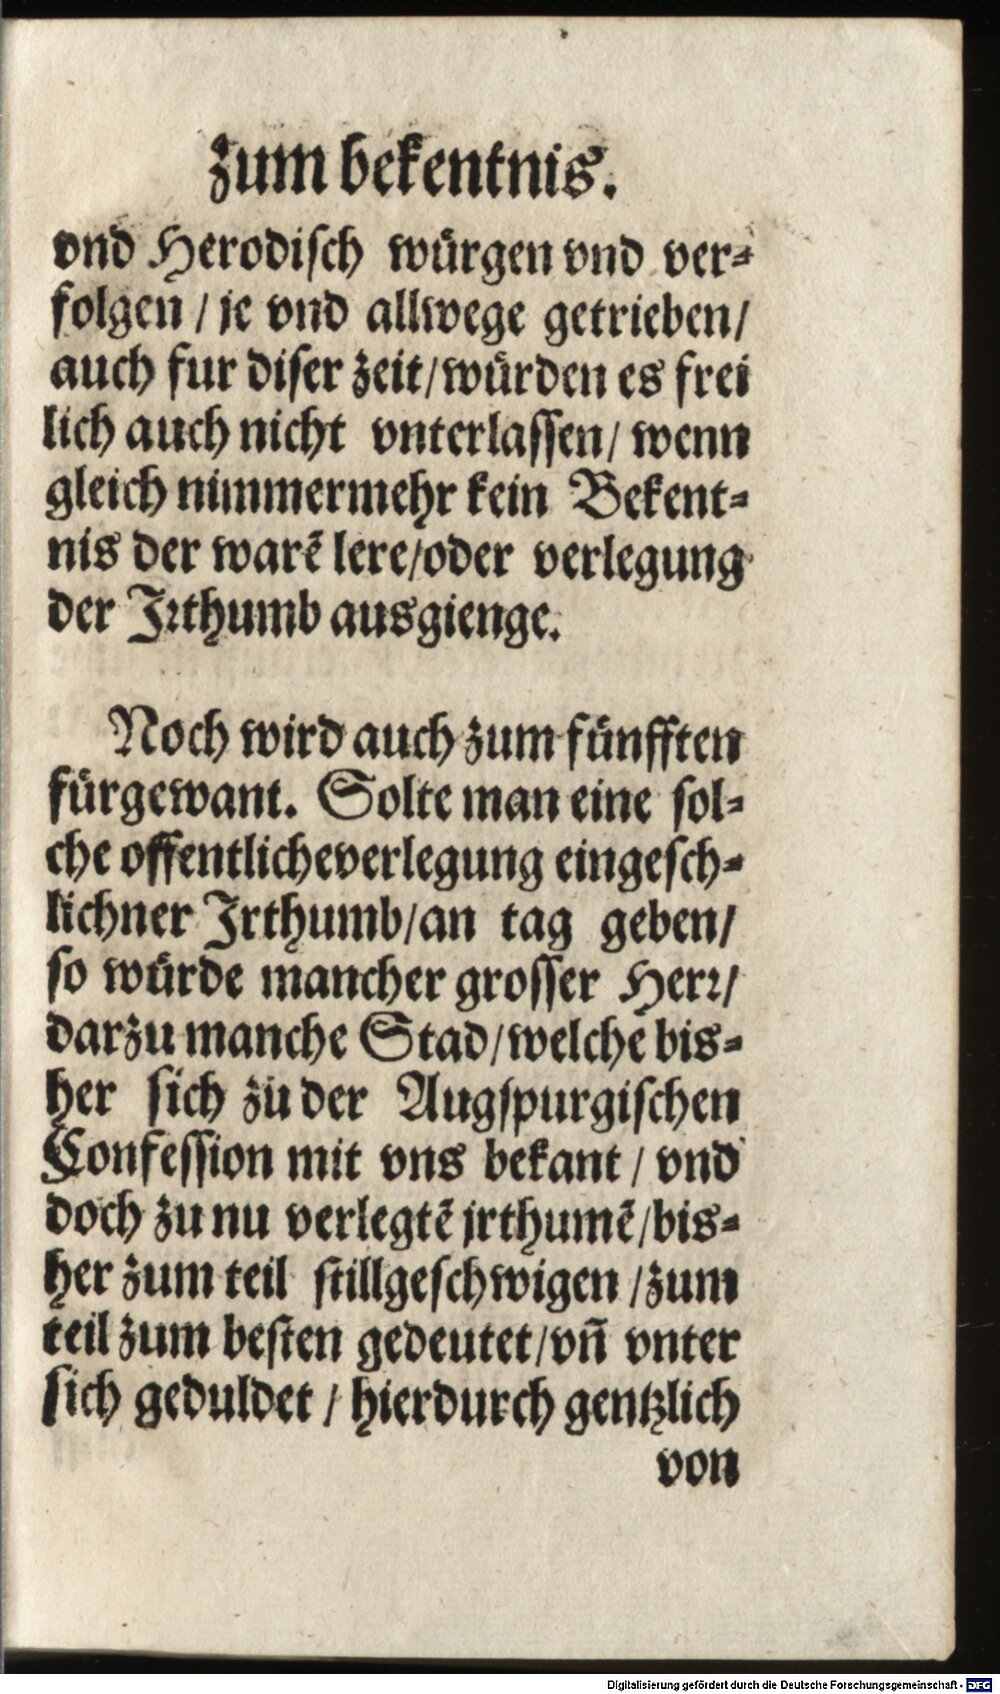 zum bekentnis.
vnd Herodisch würgen vnd ver-
folgen / je vnd allwege getrieben/
auch fur diser zeit/würden es frei
lich auch nicht vnterlassen/ wenn
gleich nimmermehr kein Bekent-
nis der warē lere/oder verlegung
der Irthumb ausgienge.
Noch wird auch zum fünfften
fürgewant. Solte man eine sol-
che offentlicheverlegung eingesch-
lichner Irthumb/an tag geben/
so würde mancher grosser Herr/
darzu manche Stad/welche bis-
her sich zu der Augspurgischen
Confession mit vns bekant / vnd
doch zu nu verlegtē jrthumē/bis-
her zum teil stillgeschwigen /zum
teil zum besten gedeutet/vn̄ vnter
sich geduldet / hierdurch gentzlich
von
Digitalisierung gefördert durch die Deutsche Forschungsgemeinschaft - DFG